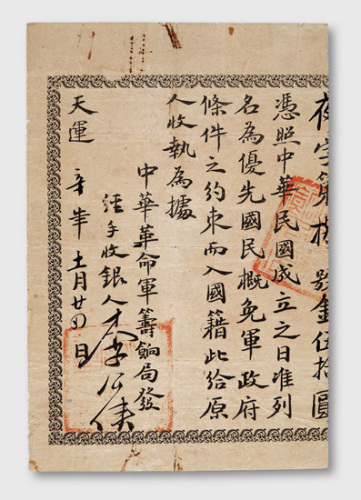 夜字第 號金伍拾圓
憑照中華民國成立之日准列
名為優先國民概免軍政府
條件之約束而入國籍此給原
人收執為據
中華革命軍籌餉局發
經手收銀人李公俠
天運 辛年 十一月廿 日